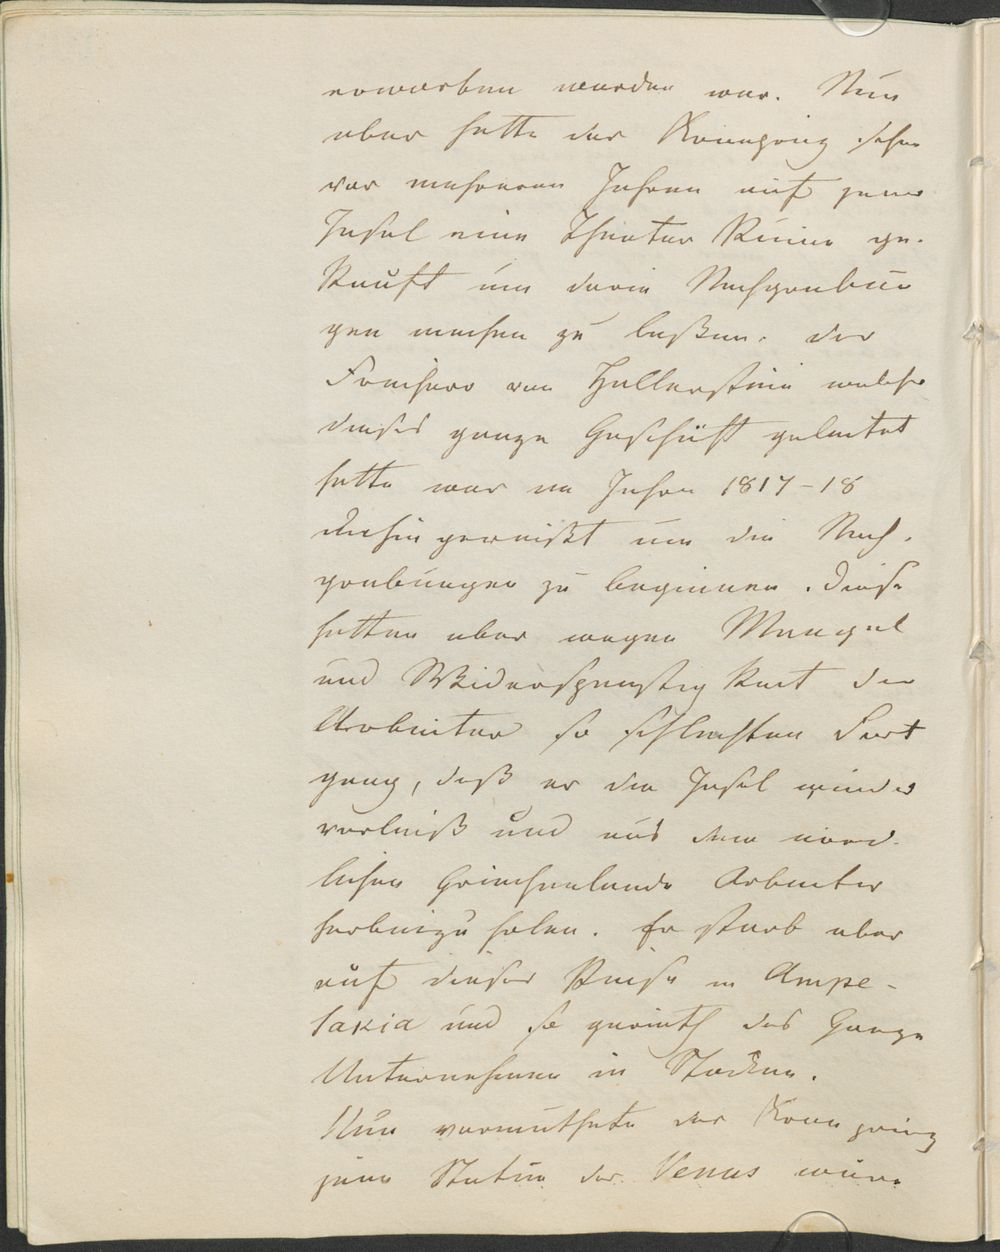 erworben worden war. Nun
aber hatte der Kronprinz schon
vor mehreren Jahren auf jener
Insel eine Theater Ruine ge-
kauft um darin Nachgrabun
gen machen zu laßen. Der
Freiherr von Hallerstein welcher
dieses ganze Geschäft geleitet
hatte war im Jahre 1817-18
dahin gereißt um die Nach-
grabungen zu beginnen. Diese
hatten aber wegen Mangel
und Widerspenstigkeit der
Arbeiter so schlechten Fort
gang, daß er die Insel wieder
verließ um aus dem nörd-
lichen Griechenlande Arbeiter
herbeizuholen. Er starb aber
auf dieser Reise in Ampe-
lakia und so gerieth das Ganze
Unternehmen in Stocken.
Nun vermuthete der Kronprinz
jene Statue der Venus wäre